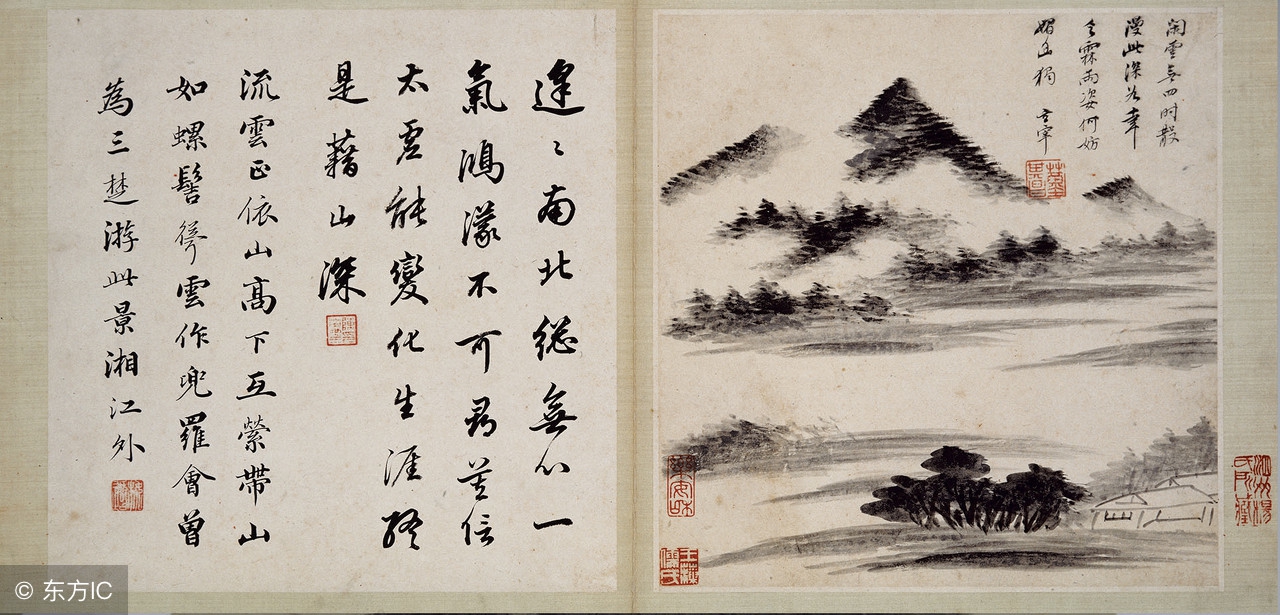 閑雲無四時散
漫此深谷幸
乏霖雨姿何妨
媚幽獨 玄宰
逢〻南北總無心一
氣鴻濛不可尋莫信
太虛能變化生涯終
是藉山深
流雲正依山高下互縈帶山
如螺髻雲作兜羅會曾
為三楚游此景湘江外
© 东方IC